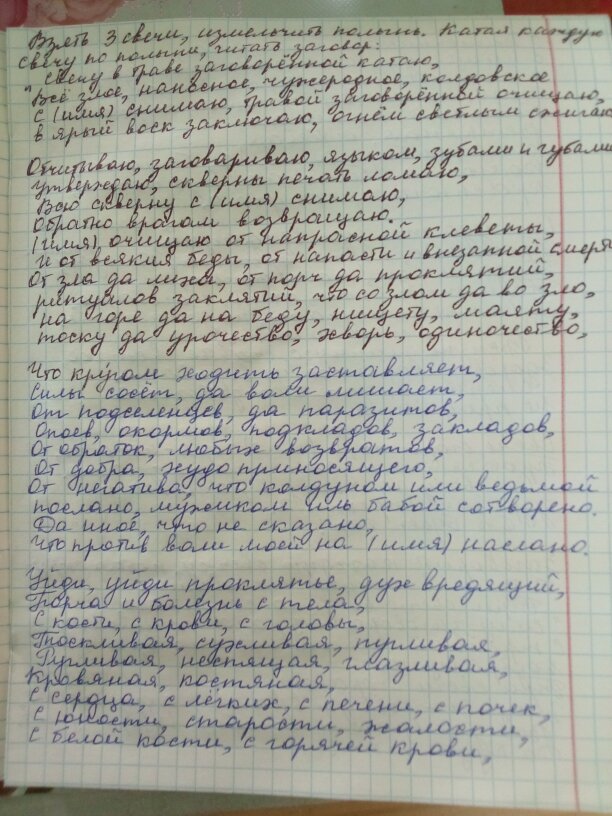 Взять 3 свечи, измельчить полынь. Катая каждую
свечу по полыни, читать заговор:
"Свечу в траве заговорённой катаю,
Всё злое, наносное, чужеродное, колдовское
с (имя) снимаю, травой заговорённой очищаю,
в ярый воск заключаю, огнём светлым сжигаю
Отчитываю, заговариваю, языком, зубами и губами
утверждаю, скверны печать ломаю,
Всю скверну с (имя) снимаю,
Обратно врагам возвращаю.
(имя), очищаю от напрасной клеветы,
и от всякия беды, от напасти и внезапной смерти
От зла да лиха, от порч да проклятий,
ритуалов заклятий, что со злом да во зло,
на горе да на беду, нищету, маяту,
тоску да урочество, хворь, одиночество,
Что кругом ходить заставляет,
Силы сосёт, да воли лишает,
От подселенцев, да паразитов,
Опоев, окормов, подкладов, закладов,
От обраток, любых возвратов,
От добра, худо приносящего,
От негатива, что колдуном или ведьмой
послано, мужиком иль бабой сотворено.
Да иное, что не сказано,
Что против воли моей на (имя) наслано.
Уйди, уйди проклятье, дух вредящий,
Порча и болезнь с тела,
С кости, с крови, с головы,
Тоскливая, сужливая, пугливая,
Ругливая, неспящая, глазливая,
Кровяная, костяная,
С сердца, с лёгких, с печени, с почек,
С юности, старости, жалости,
С белой кости, с горячей крови,